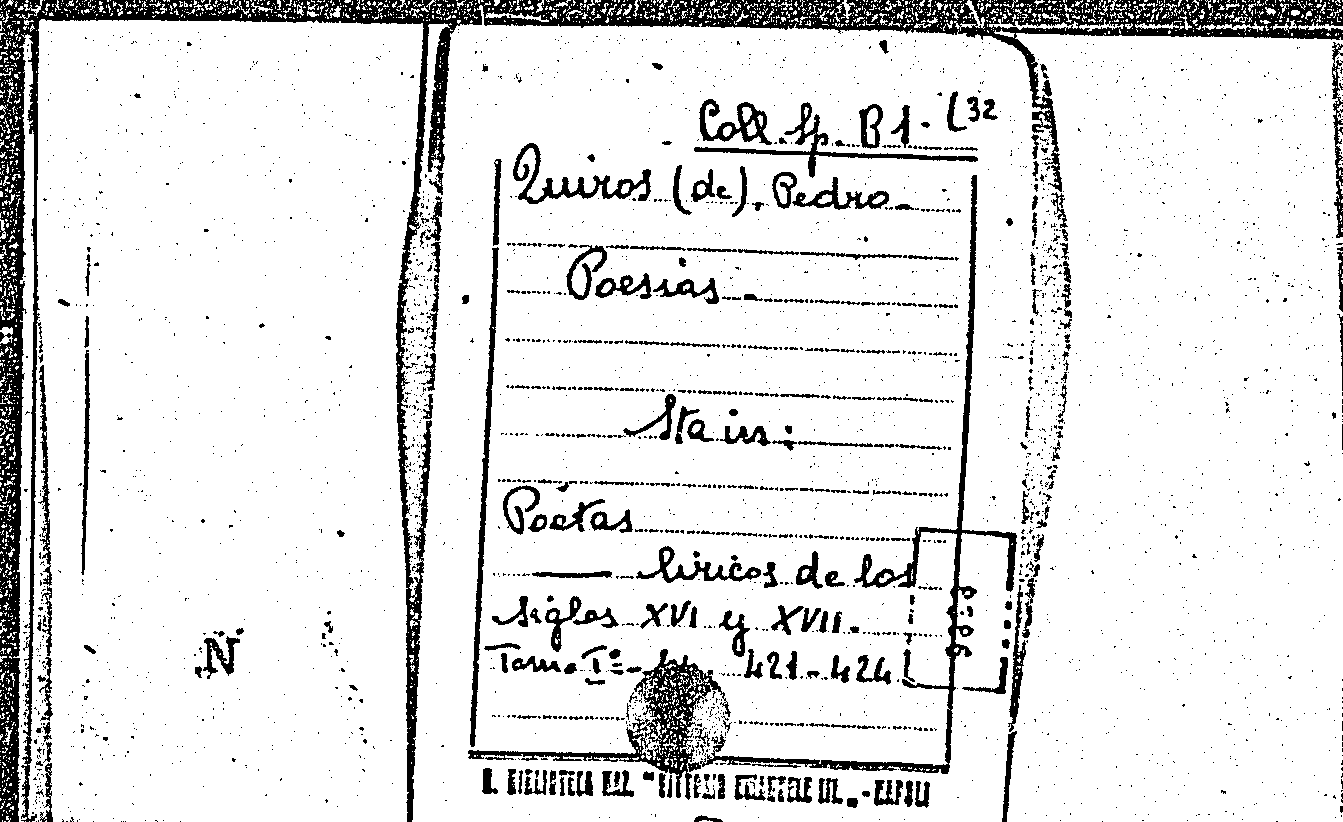 Coll. Sp. B 1. (32
Quiros (de). Pedro.
Poesias.
Sta in:
Poetas
liricos de los
siglos XVI y XVII.
Tomo I°- 421-424
N
B. BIBLIOTECA NAZ. "VITTORIO EMANUELE III." - NAPOLI